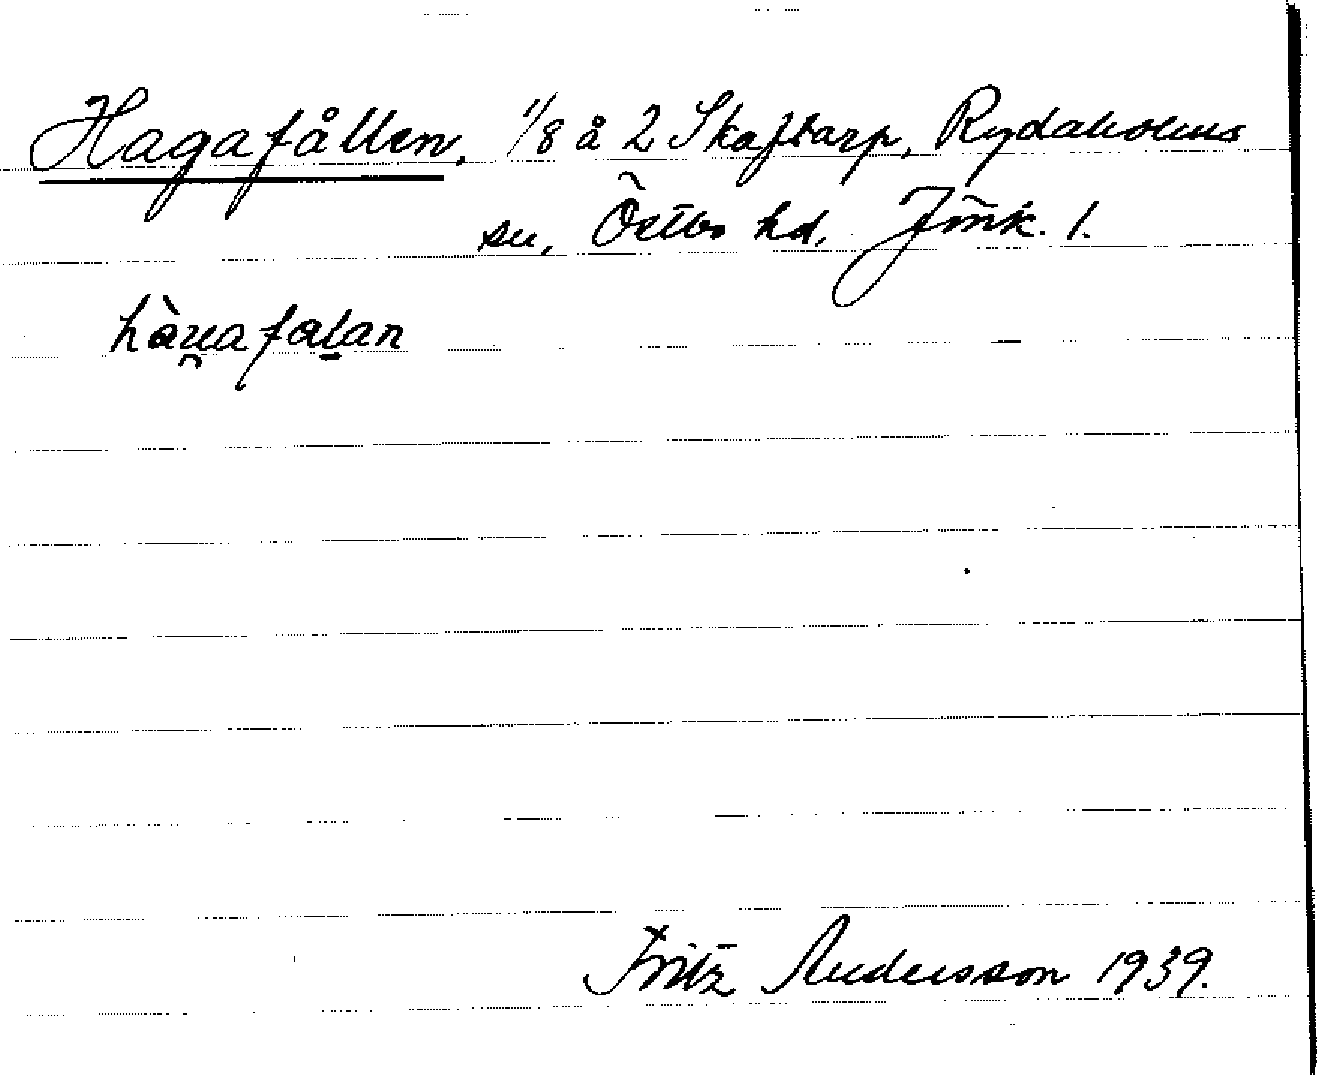 Hagafållen, 1/8 å 2 Skaftarp, Rydaholms
sn, Östbo hd, Jönk. l.
hàu̯afalan
Fritz Andersson 1939.